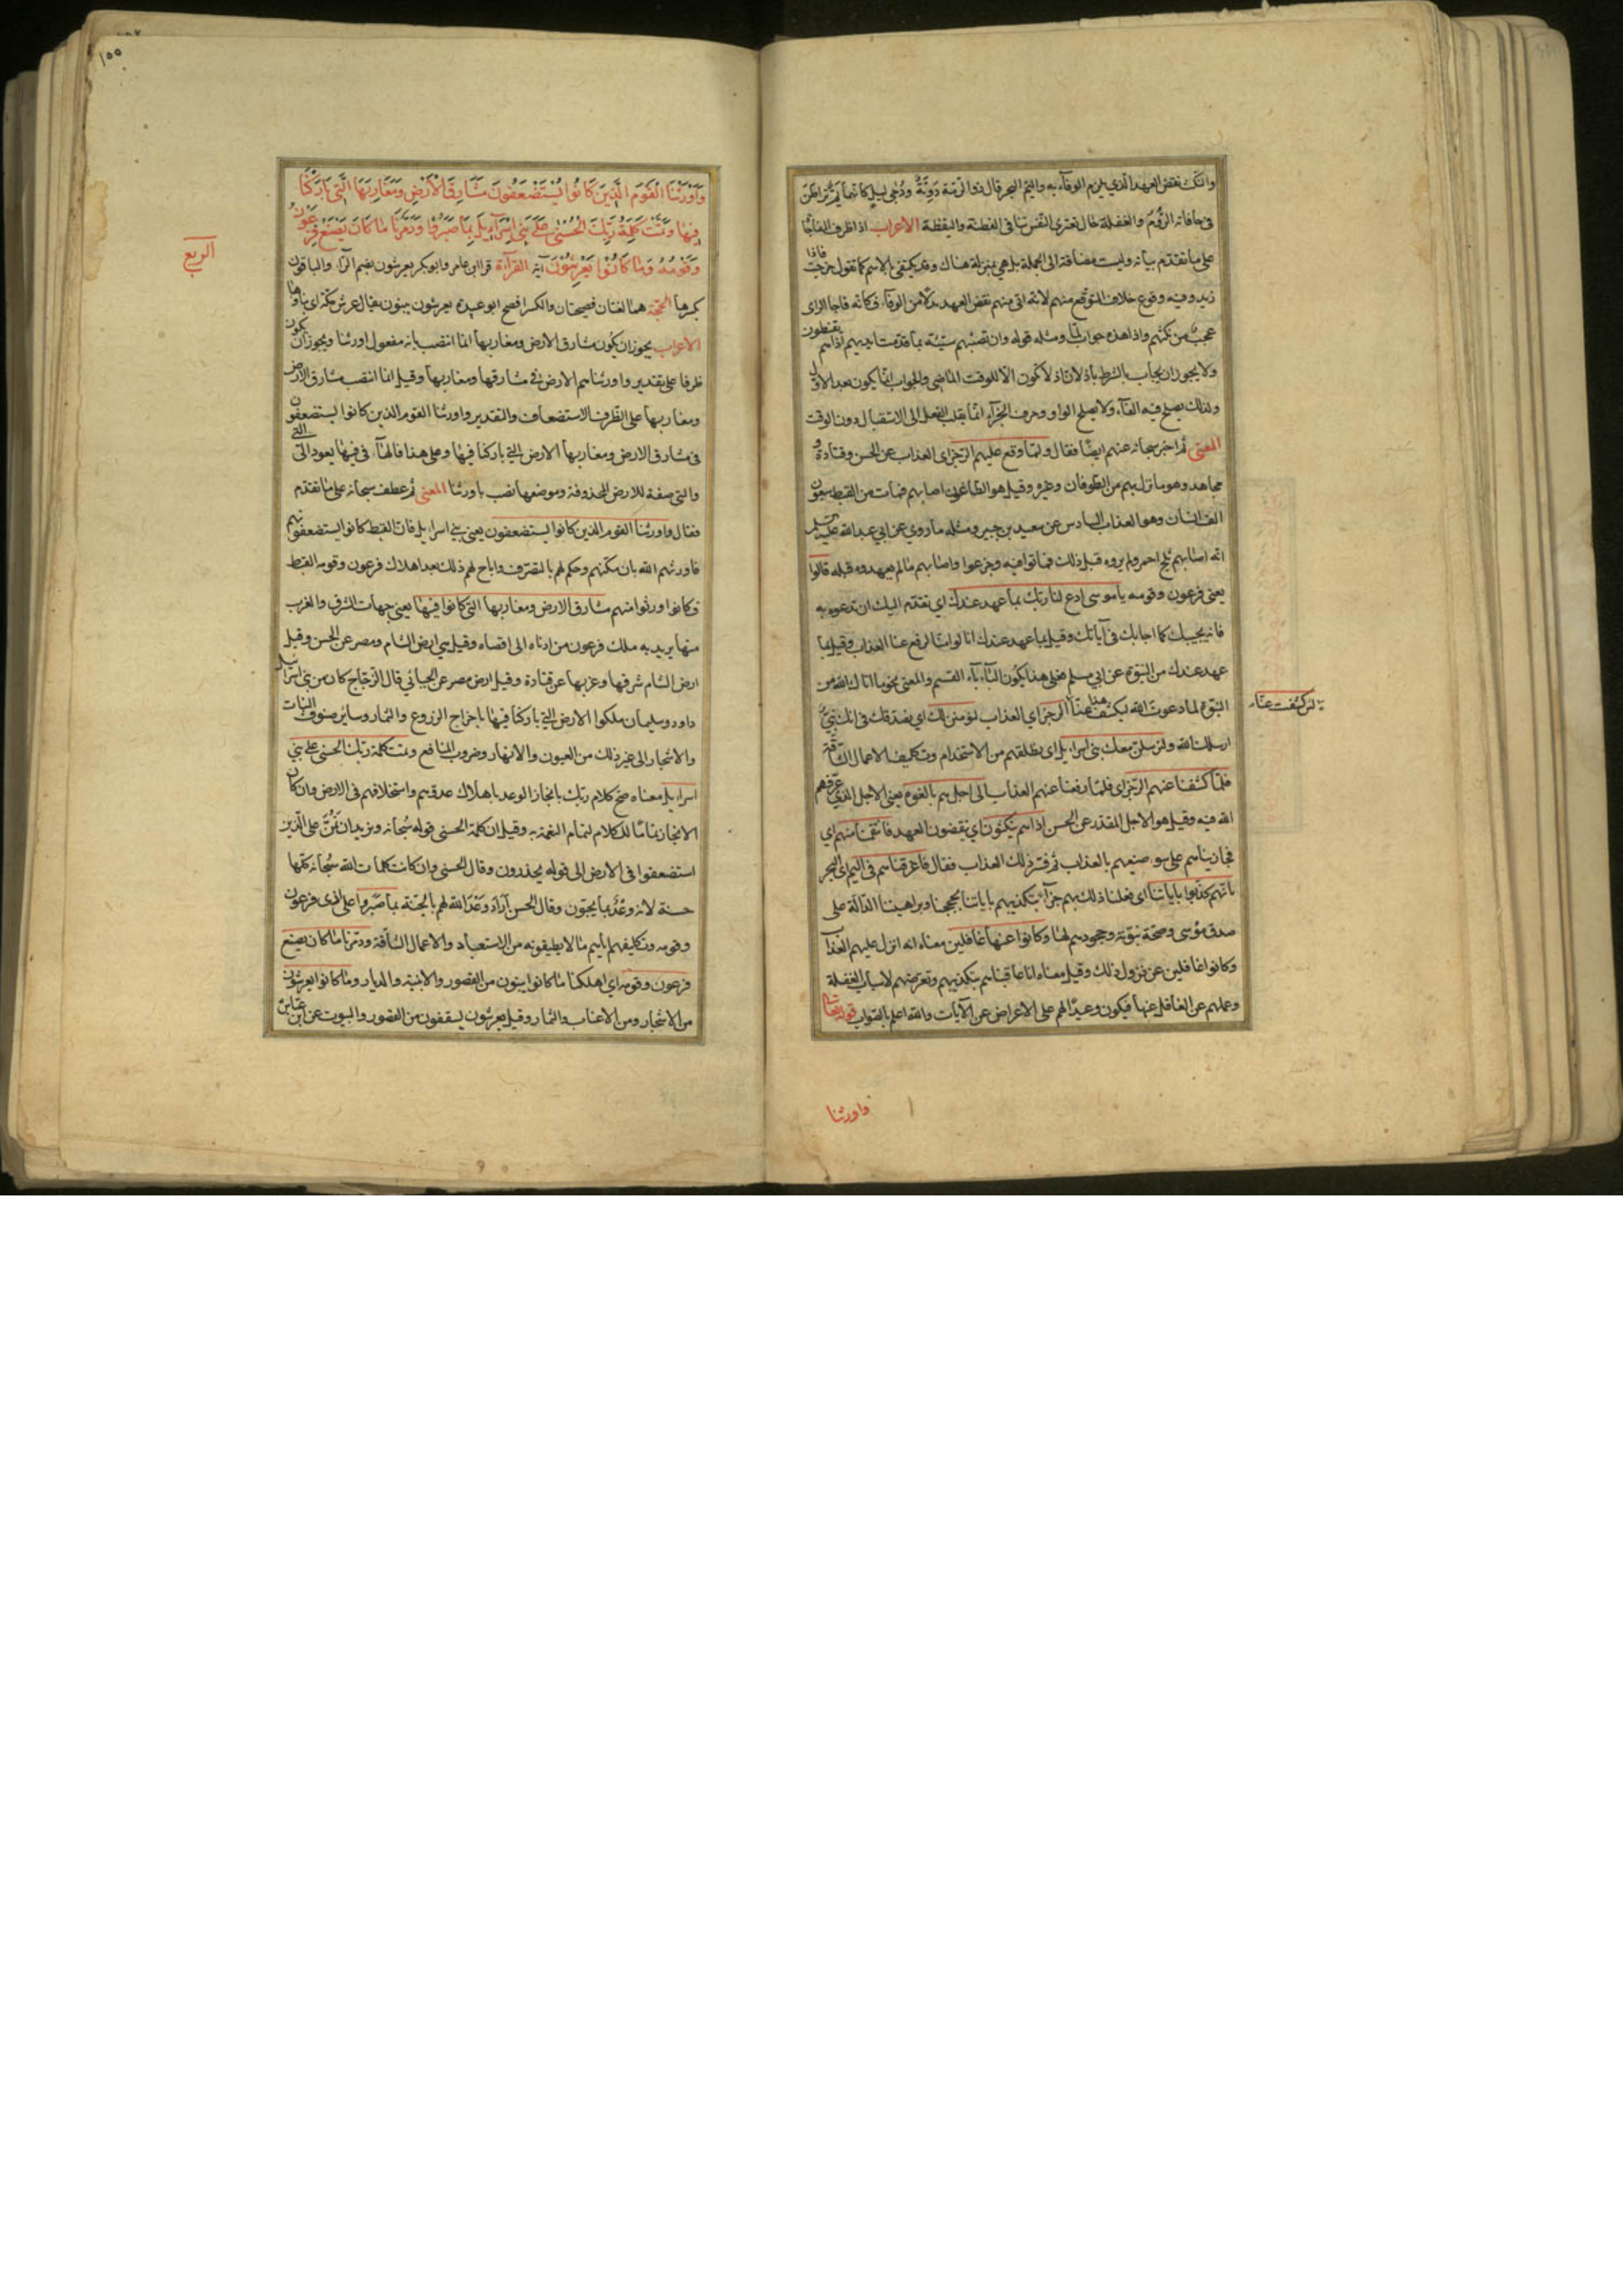 والنكث نقض العهد الذي يلزم الوفاء به واليم البحر قال ذو الرمة دوية ودجى ليل كانهما يم تراطن
في حافاته الروم والغفلة حال تعتري النفس تنافي الفطنة واليقظة الاعراب اذا ظرف المفاجاة
على ما تقدم بيانه وليست مضافة الى الجملة بل هي بمنزلة هناك وقد يكتفي بالاسم كما تقول خرجت فاذا
زيد وفيه وقوع خلاف المتوقع منهم لانه اتى منهم نقض العهد بدلا من الوفاء فكانه فاجا الراي
عجب من نكثهم واذا هذه جواب لما ومثله قوله وان تصبهم سيئة بما قدمت ايديهم اذا هم يقنطون
ولا يجوز ان يجاب بالشرط باذ لان اذ لا تكون الا للوقت الماضي والجواب انما يكون بعد الاول
ولذلك يصلح فيه الفاء ولا يصلح الواو وحرف الجزاء انما يقلب الفعل الى الاستقبال دون الوقت
المعنى ثم اخبر سبحانه عنهم ايضا فقال ولما وقع عليهم الرجز اي العذاب عن الحسن وقتادة و
مجاهد وهو ما نزل بهم من الطوفان وغيره وقيل هو الطاعون اصابهم فمات من القبط سبعون
الف انسان وهو العذاب السادس عن سعيد بن جبير ومثله ما روي عن ابي عبد الله عليه السلم
انه اصابهم ثلج احمر ولم يروه قبل ذلك فماتوا فيه وجزعوا واصابهم ما لم يعهدوه قبله قالوا
يعني فرعون وقومه يا موسى ادع لنا ربك بما عهد عندك اي تقدم اليك ان تدعوه به
فانه يجيبك كما اجابك في آياتك وقيل بما عهد عندك انا لو امنا لرفع عنا العذاب وقيل بما
عهد عندك من النبوة عن ابي مسلم فعلى هذا يكون الباء باء القسم والمعنى بحق ما اتاك الله من
النبوة لما دعوت الله ليكشف هذا عنا الرجز اي العذاب لنؤمنن لك اي نصدقك في انك نبي
لئن كشفت عنا
ارسلك الله ولنرسلن معك بني اسرايل اي نطلقهم من الاستخدام وتكليف الاعمال الشاقة
فلما كشفنا عنهم الرجز اي فلما رفعنا عنهم العذاب الى اجل هم بالغوه يعني الاجل الذي عرفهم
الله فيه وقيل هو الاجل المقدر عن الحسن اذا هم ينكثون اي ينقضون العهد فانتقمنا منهم اي
فجازيناهم على سوء صنيعهم بالعذاب ثم فسر ذلك العذاب فقال فاغرقناهم في اليم اي البحر
بانهم كذبوا باياتنا اي فعلنا ذلك بهم جزاء بتكذيبهم باياتنا بحججنا وبراهيننا الدالة على
صدق موسى وصحة نبوته وجحودهم لها وكانوا عنها غافلين معناه انه انزل عليهم العذاب
وكانوا غافلين عن نزول ذلك وقيل معناه انا عاقبناهم بتكذيبهم وتعرضهم لاسباب الغفلة
وعملهم عن الغافل عنها فيكون وعيدا لهم على الاعراض عن الآيات والله اعلم بالصواب قوله تعالى
واورثنا
١٥٥
وَاَوْرَثْنَا الْقَوْمَ الَّذِينَ كَانُوا يُسْتَضْعَفُونَ مَشَارِقَ الْاَرْضِ وَمَغَارِبَهَا الَّتِي بَارَكْنَا
فِيهَا وَتَمَّتْ كَلِمَةُ رَبِّكَ الْحُسْنٰى عَلٰى بَنِي اِسْرَائِيلَ بِمَا صَبَرُوا وَدَمَّرْنَا مَا كَانَ يَصْنَعُ فِرْعَوْنُ
الربع
وَقَوْمُهُ وَمَا كَانُوا يَعْرِشُونَ آية القرآءة قرا ابن عامر وابو بكر يعرشون بضم الراء والباقون
بكسرها الحجة هما لغتان فصيحتان والكسر افصح ابو عبيدة يعرشون يبنون يقال عرش مكة اي بناوها
الاعراب يجوز ان يكون مشارق الارض ومغاربها انما انتصب بانه مفعول اورثنا ويجوز ان يكون
ظرفا على تقدير واورثناهم الارض في مشارقها ومغاربها وقيل انما انتصب مشارق الارض
ومغاربها على الظرف للاستضعاف والتقدير واورثنا القوم الذين كانوا يستضعفون
في مشارق الارض ومغاربها الارض التي باركنا فيها وعلى هذا فالهاء في فيها يعود الى التي
والتي صفة للارض المحذوفة وموضعها نصب باورثنا المعنى ثم عطف سبحانه على ما تقدم
فقال واورثنا القوم الذين كانوا يستضعفون يعني بني اسرايل فان القبط كانوا يستضعفونهم
فاورثهم الله بان مكنهم وحكم لهم بالتصرف واباح لهم ذلك بعد اهلاك فرعون وقومه القبط
فكانوا ورثوا منهم مشارق الارض ومغاربها التي كانوا فيها يعني جهات الشرق والغرب
منها يريد به ملك فرعون من ادناه الى اقصاه وقيل هي ارض الشام ومصر عن الحسن وقيل
ارض الشام شرقها وغربها عن قتادة وقيل ارض مصر عن الجبائي قال الزجاج كان من بني اسرايل
داود وسليمان ملكوا الارض التي باركنا فيها باخراج الزروع والثمار وساير صنوف النبات
والاشجار الى غير ذلك من العيون والانهار وضروب المنافع وتمت كلمة ربك الحسنى على بني
اسرايل معناه صح كلام ربك بانجاز الوعد باهلاك عدوهم واستخلافهم في الارض وان كان
الانجاز تماما للكلام لتمام النعمة به وقيل ان كلمة الحسنى قوله سبحانه ونريد ان نمن على الذين
استضعفوا في الارض الى قوله يحذرون وقال الحسنى وان كانت كلمات الله سبحانه كلها
حسنة لانه وعد بما يحبون وقال الحسن اراد وعد الله لهم بالجنة بما صبروا على اذى فرعون
وقومه وتكليفهم اياهم ما لا يطيقونه من الاستعباد والاعمال الشاقة ودمرنا ما كان يصنع
فرعون وقومه اي اهلكنا ما كانوا يبنون من القصور والابنية والديار وما كانوا يعرشون
من الاشجار ومن الاعناب والثمار وقيل يعرشون يسقفون من القصور والبيوت عن ابن عباس